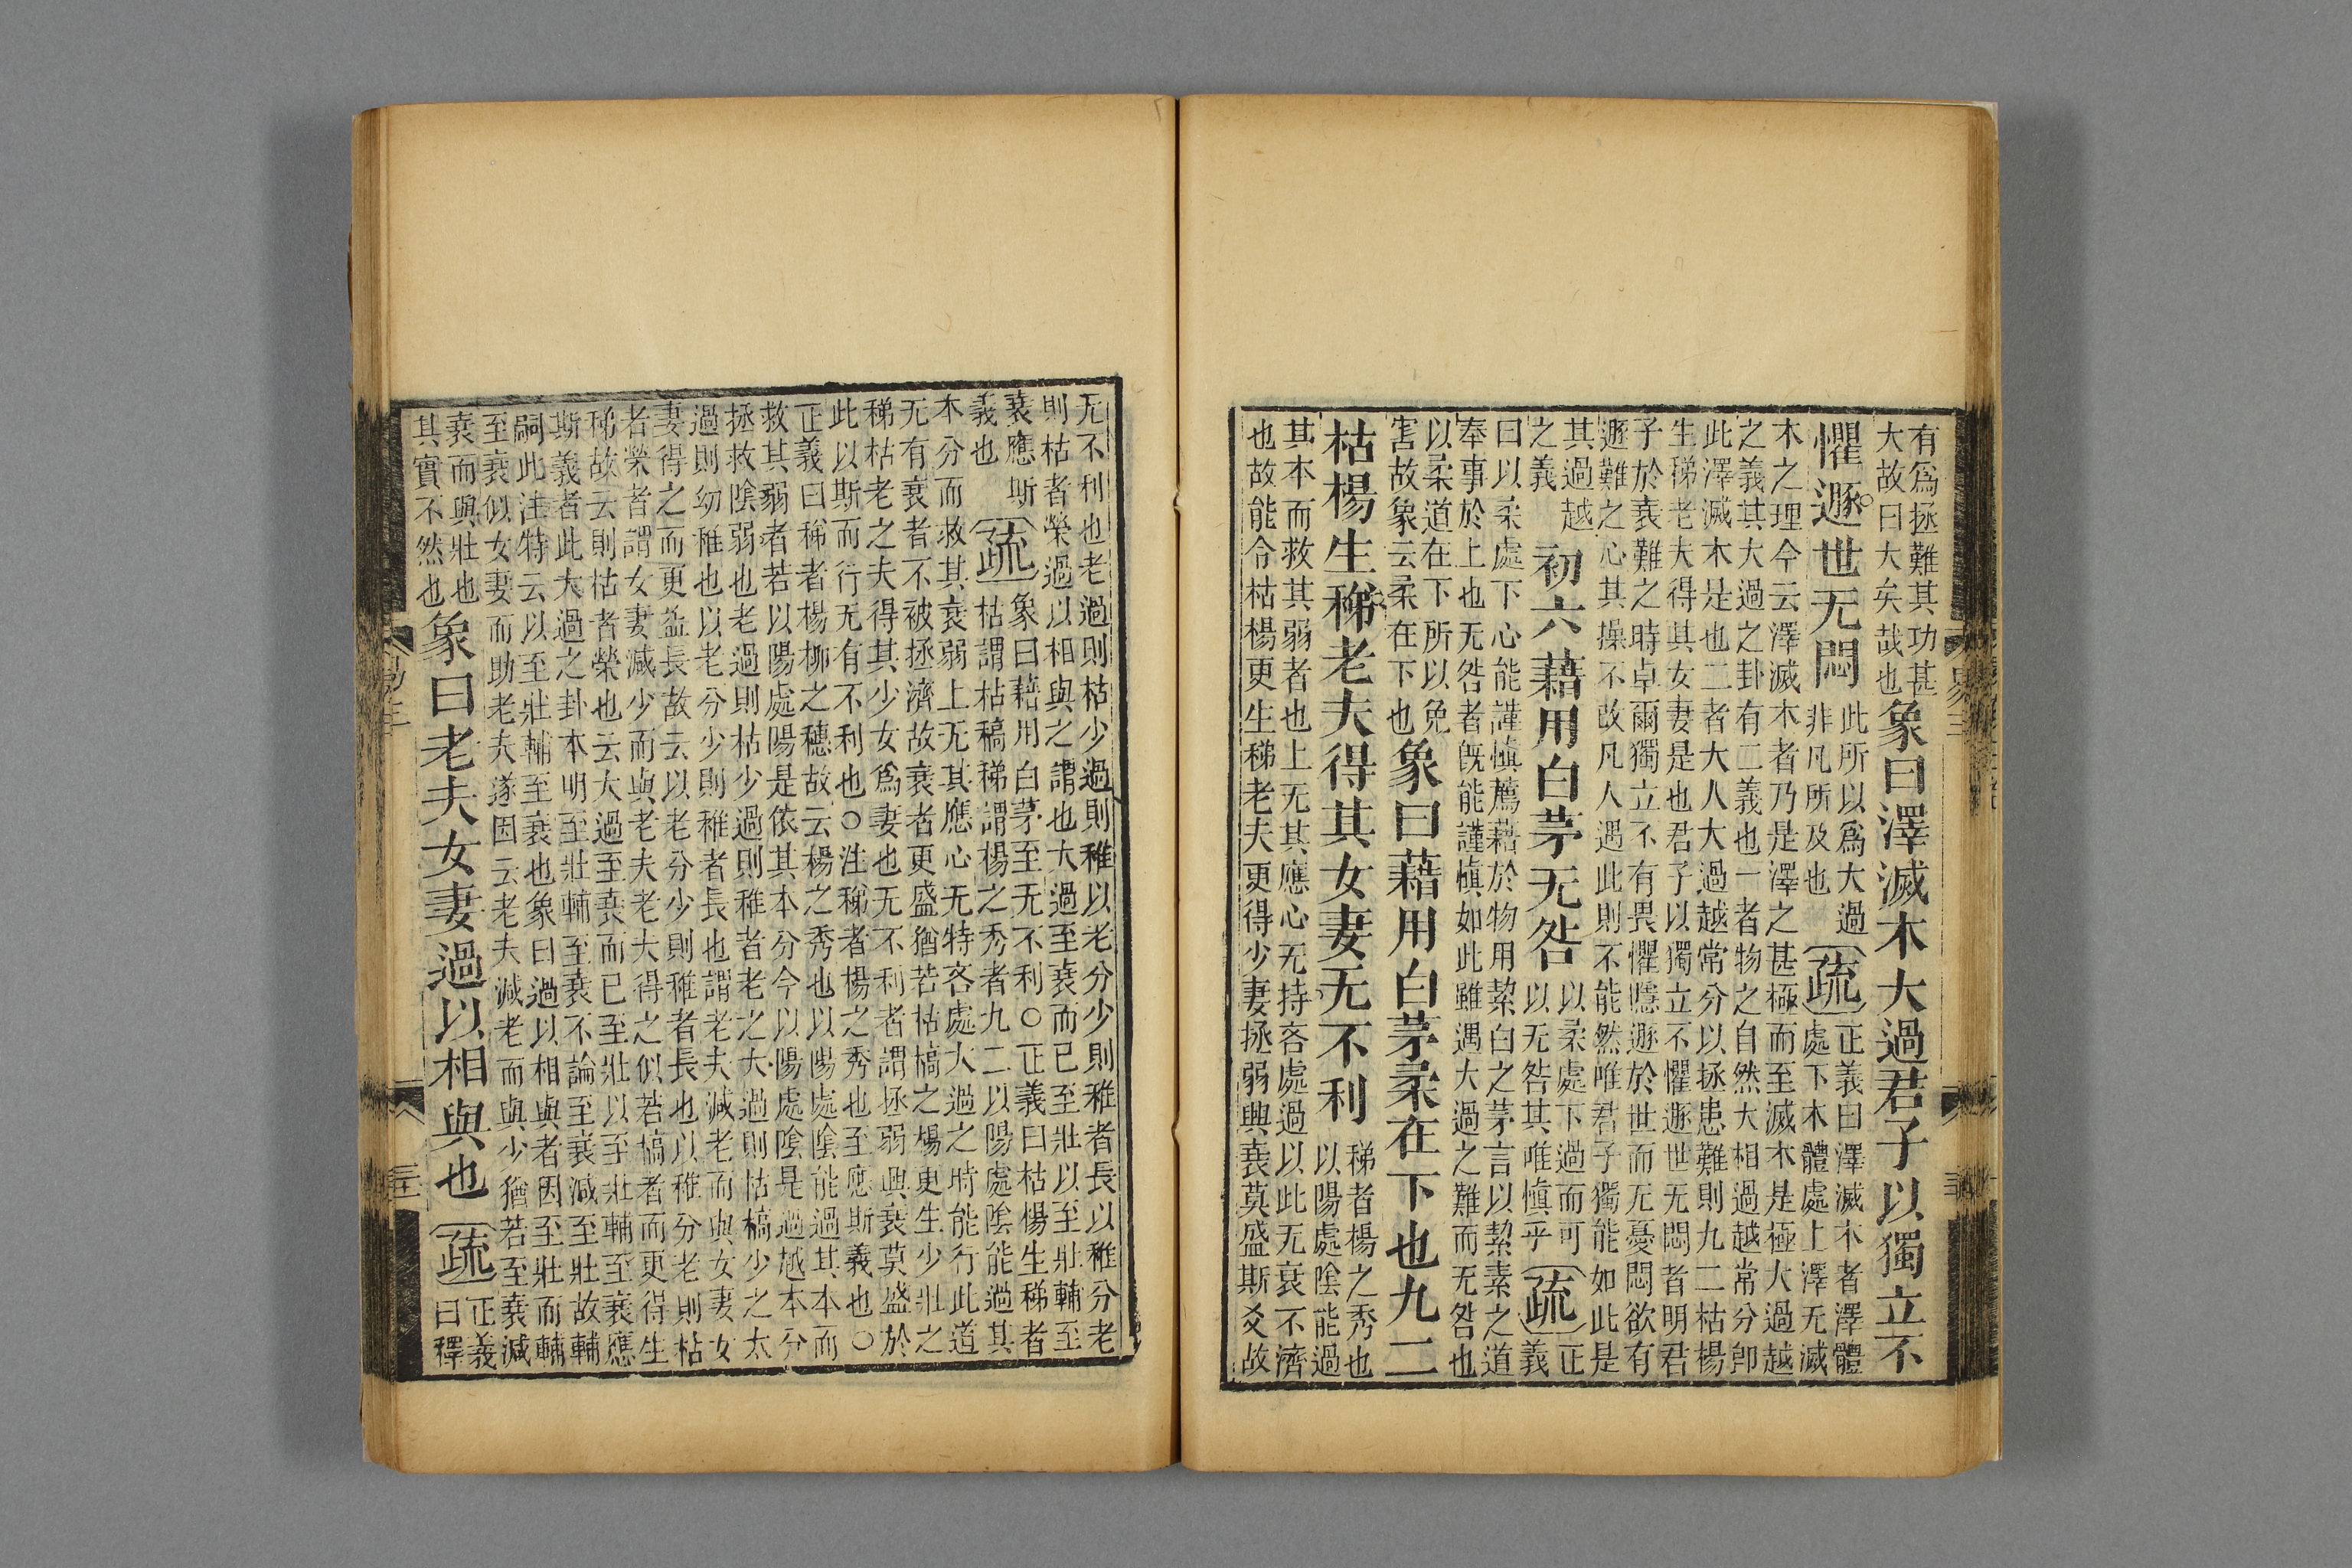 有爲拯難其功甚
大故曰大矣哉也
象曰澤滅木大過君子以獨立不
懼遯世无悶
此所以爲大過
非凡所及也
疏
正義曰澤滅木者澤體
處下木體處上澤无滅
木之理今云澤滅木者乃是澤之甚極而至滅木是極大過越
之義其大過之卦有二義也一者物之自然大相過越常分卽
此澤滅木是也二者大人大過越常分以拯患難則九二枯楊
生稊老夫得其女妻是也君子以獨立不懼遯世无悶者明君
子於衰難之時卓爾獨立不有畏懼隱遯於世而无憂悶欲有
遯難之心其操不改凡人遇此則不能然唯君子獨能如此是
其過越
之義
初六藉用白茅无咎
以柔處下過而可
以无咎其唯愼乎
疏
正
義
曰以柔處下心能謹愼薦藉於物用絜白之茅言以絜素之道
奉事於上也无咎者旣能謹愼如此雖遇大過之難而无咎也
以柔道在下所以免
害故象云柔在下也
象曰藉用白茅柔在下也九二
枯楊生稊老夫得其女妻无不利
稊者楊之秀也
以陽處陰能過
其本而救其弱者也上无其應心无持吝處過以此无衰不濟
也故能令枯楊更生稊老夫更得少妻拯弱興衰莫盛斯爻故
易三
无不利也老過則枯少過則稚以老分少則稚者長以稚分老
則枯者榮過以相與之謂也大過至衰而已至壯以至壯輔至
衰應斯
義也
疏
象曰藉用白茅至无不利○正義曰枯楊生稊者
枯謂枯稿稊謂楊之秀者九二以陽處陰能過其
本分而救其衰弱上无其應心无特吝處大過之時能行此道
无有衰者不被拯濟故衰者更盛猶若枯槁之楊更生少壯之
稊枯老之夫得其少女爲妻也无不利者謂拯弱興衰莫盛於
此以斯而行无有不利也○注稊者楊之秀也至應斯義也○
正義曰稊者楊柳之穗故云楊之秀也以陽處陰能過其本而
救其弱者若以陽處陽是依其本分今以陽處陰是過越本分
拯救陰弱也老過則枯少過則稚者老之大過則枯槁少之太
過則幼稚也以老分少則稚者長也謂老夫減老而與女妻女
妻得之而更益長故云以老分少則稚者長也以稚分老則枯
者榮者謂女妻減少而與老夫老夫得之似若槁者而更得生
稊故云則枯者榮也云大過至衰而已至壯以至壯輔至衰應
斯義者此大過之卦本明至壯輔至衰不論至衰減至壯故輔
嗣此注特云以至壯輔至衰也象曰過以相與者因至壯而輔
至衰似女妻而助老夫遂因云老夫減老而與少猶若至衰減
衰而與壯也
其實不然也
象曰老夫女妻過以相與也
疏
正義
曰釋